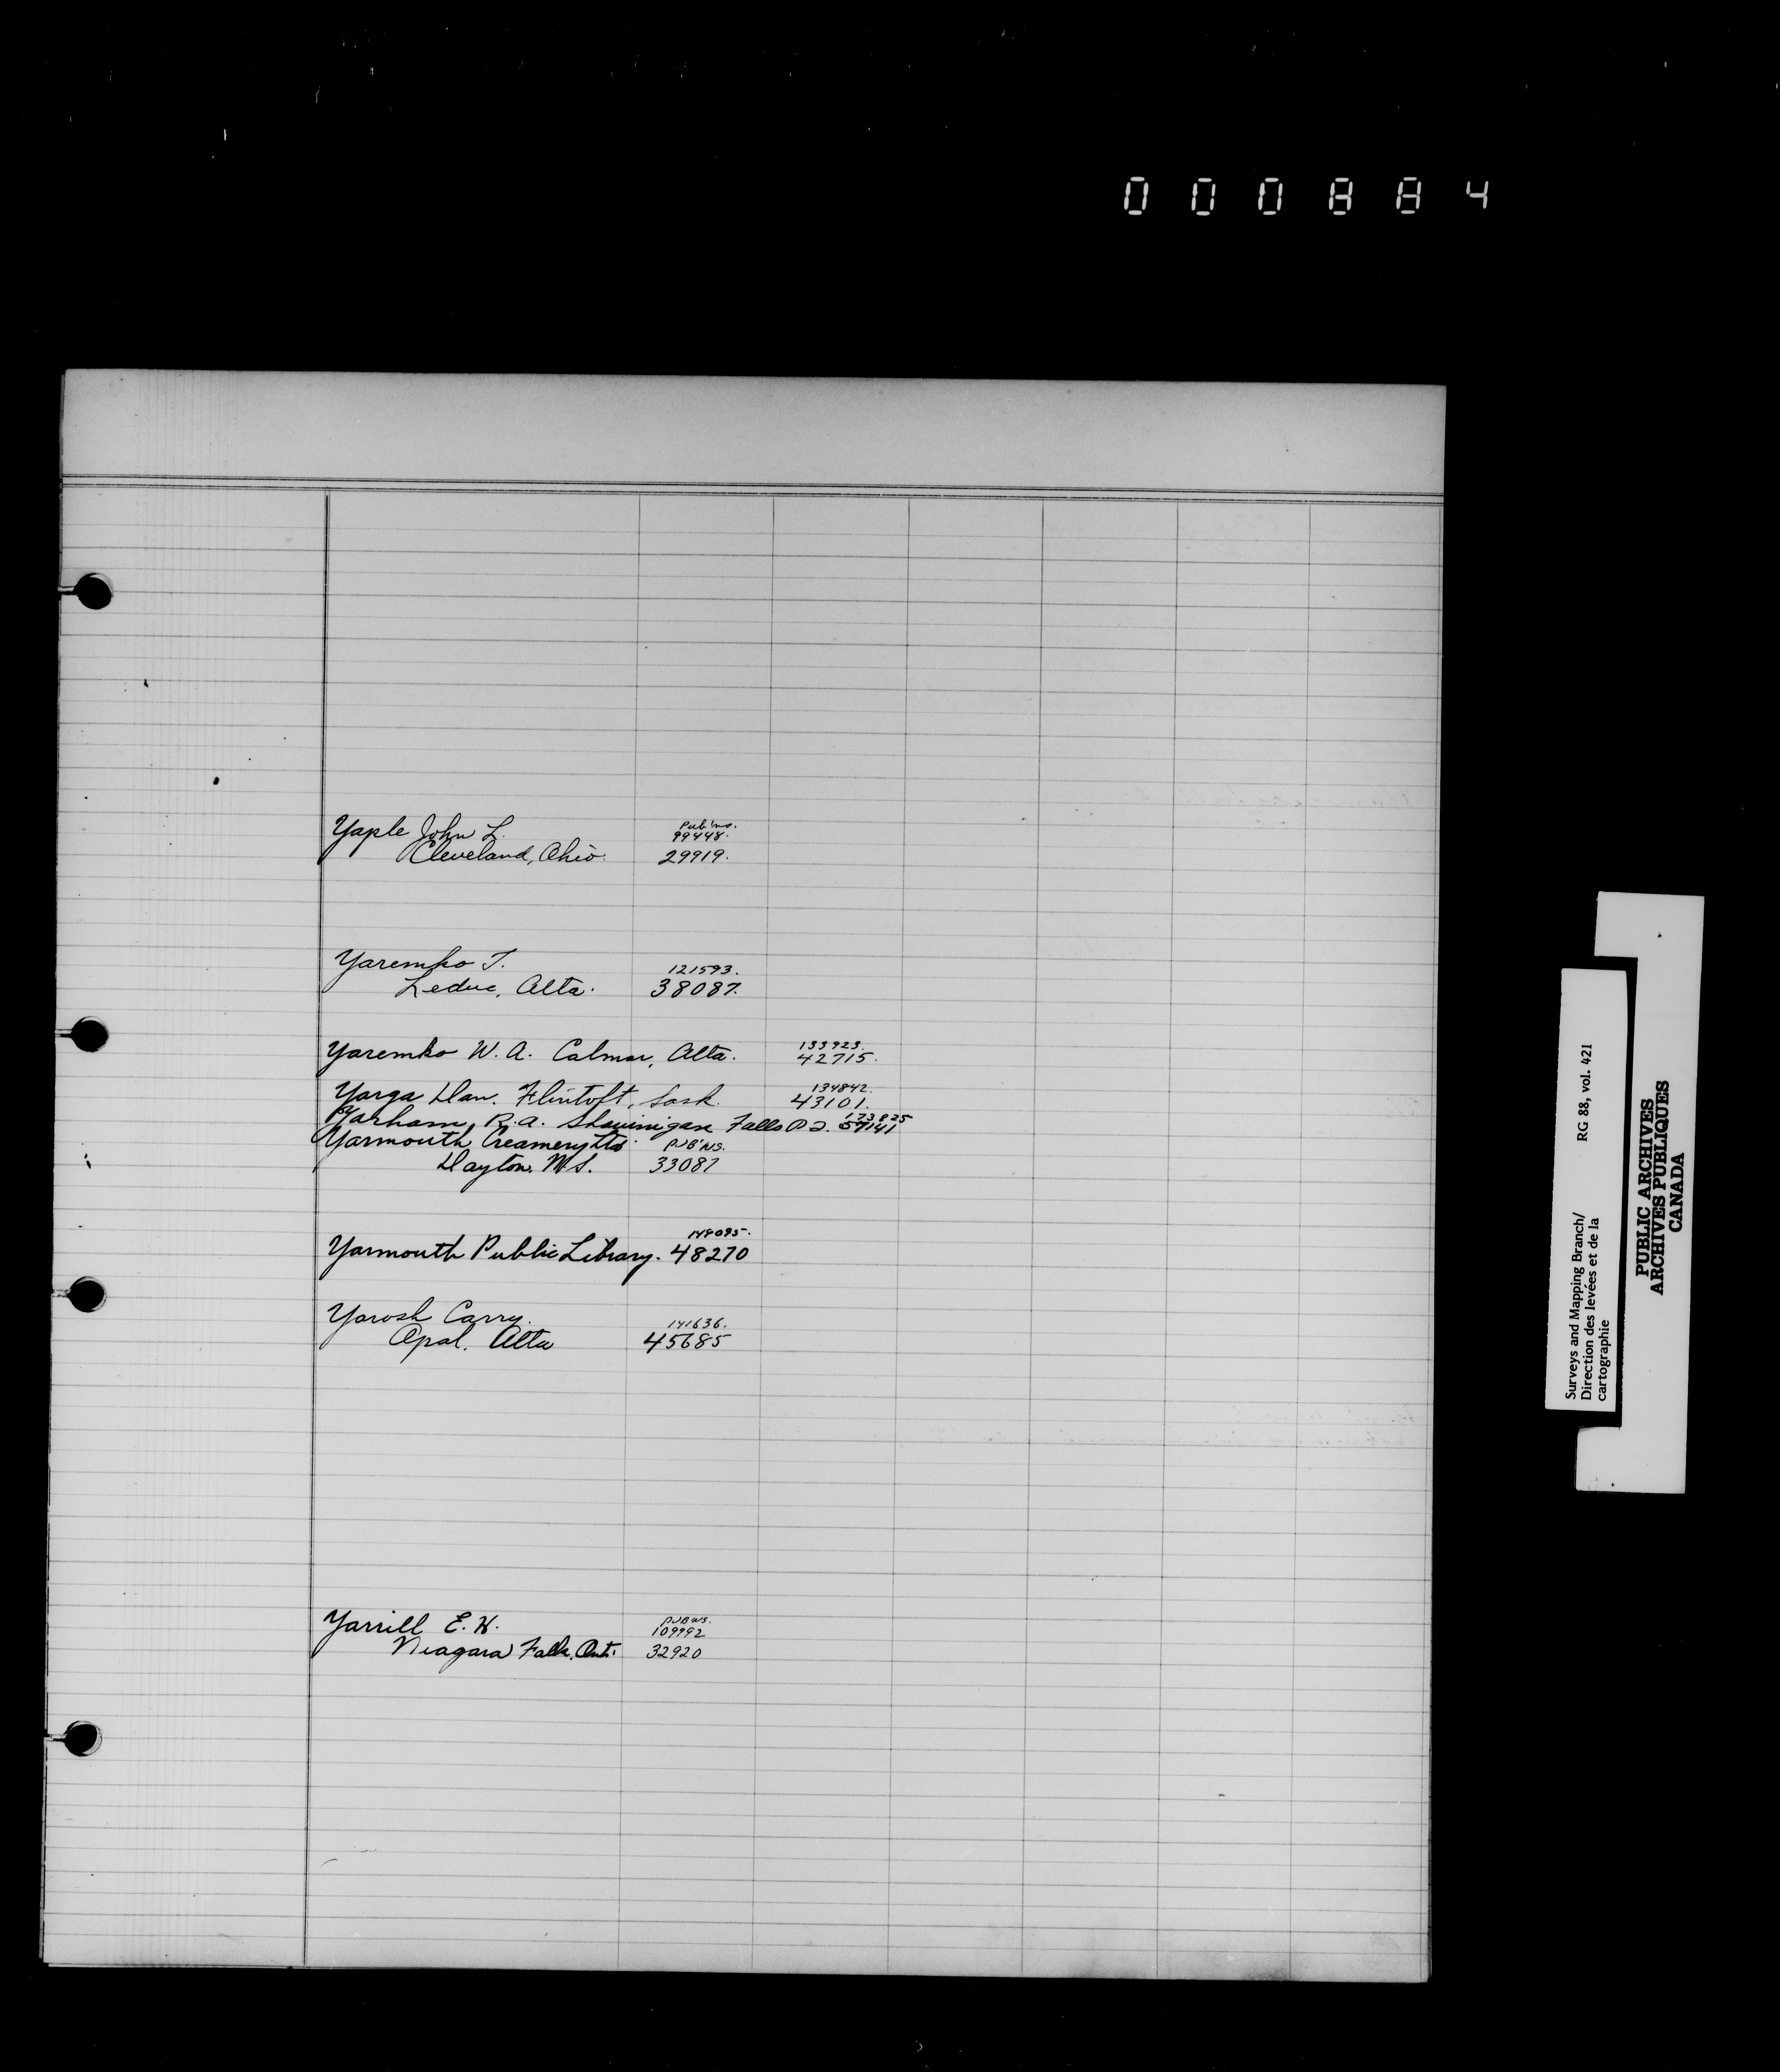 000884
Yaple John L.
Pub'ns.
99448.
Cleveland, Ohio. 29919.
Yaremko T.
121593.
Leduc, Alta. 38087.
133923.
Yaremko W. A. Calmar, Alta. 42715.
134842.
Yarga Dan. Flintoft, Sask. 43101.
173825
Yarham, R. A. Shawinigan Falls P.Q. 57141
Yarmouth Creamery Ltd. PUB'NS.
Dayton, N.S. 33087
148095.
Yarmouth Public Library. 48270
Yarosh Carry.
141636.
Opal, Alta 45685
Yarrill E.
PUBNS.
109992
Niagara Falls, Ont. 32920
Surveys and Mapping Branch/
Direction des levées et de la
cartographie
RG 88, vol. 421
PUBLIC ARCHIVES
ARCHIVES PUBLIQUES
CANADA